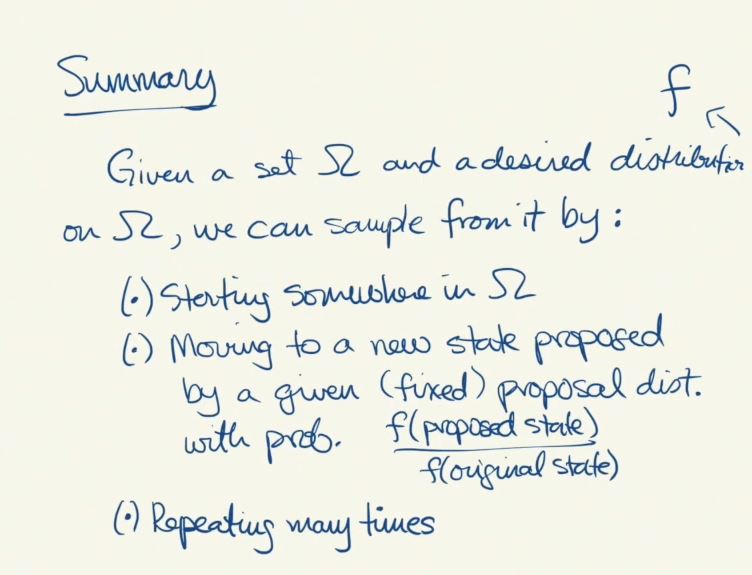 Summary
f
Given a set Ω and a desired distribution
on Ω, we can sample from it by:
(·) Starting somewhere in Ω
(·) Moving to a new state proposed
by a given (fixed) proposal dist.
with prob. f(proposed state)
f(original state)
(·) Repeating many times